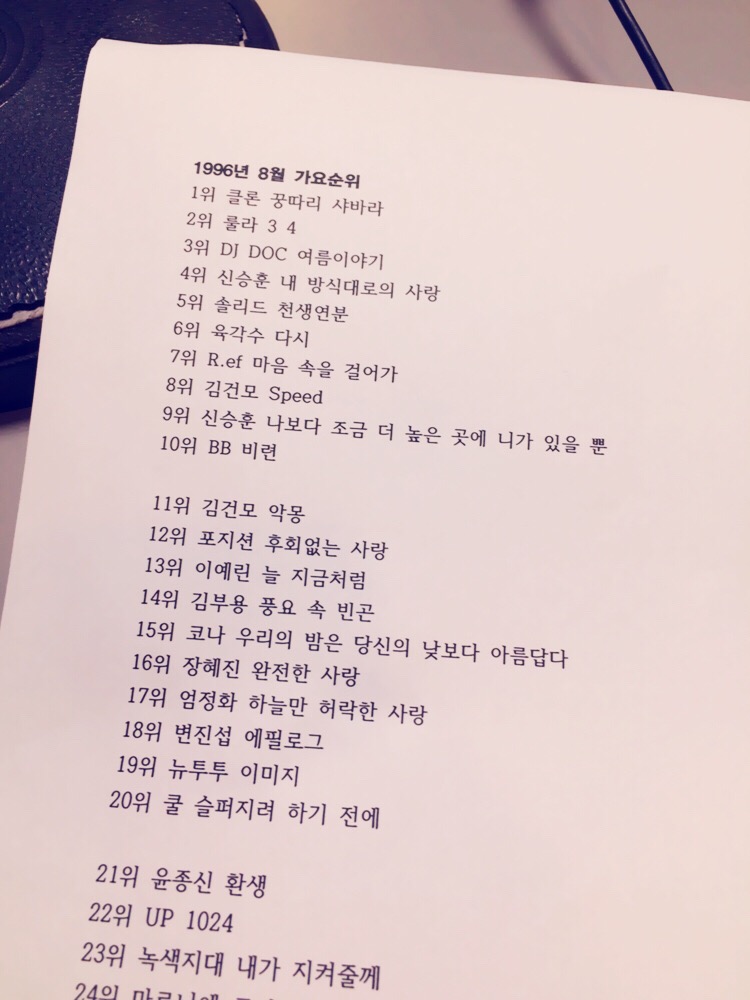 1996년 8월 가요순위
1위 클론 꿍따리 샤바라
2위 룰라 3 4
3위 DJ DOC 여름이야기
4위 신승훈 내 방식대로의 사랑
5위 솔리드 천생연분
6위 육각수 다시
7위 R.ef 마음 속을 걸어가
8위 김건모 Speed
9위 신승훈 나보다 조금 더 높은 곳에 니가 있을 뿐
10위 BB 비련
11위 김건모 악몽
12위 포지션 후회없는 사랑
13위 이예린 늘 지금처럼
14위 김부용 풍요 속 빈곤
15위 코나 우리의 밤은 당신의 낮보다 아름답다
16위 장혜진 완전한 사랑
17위 엄정화 하늘만 허락한 사랑
18위 변진섭 에필로그
19위 뉴투투 이미지
20위 쿨 슬퍼지려 하기 전에
21위 윤종신 환생
22위 UP 1024
23위 녹색지대 내가 지켜줄께
24위